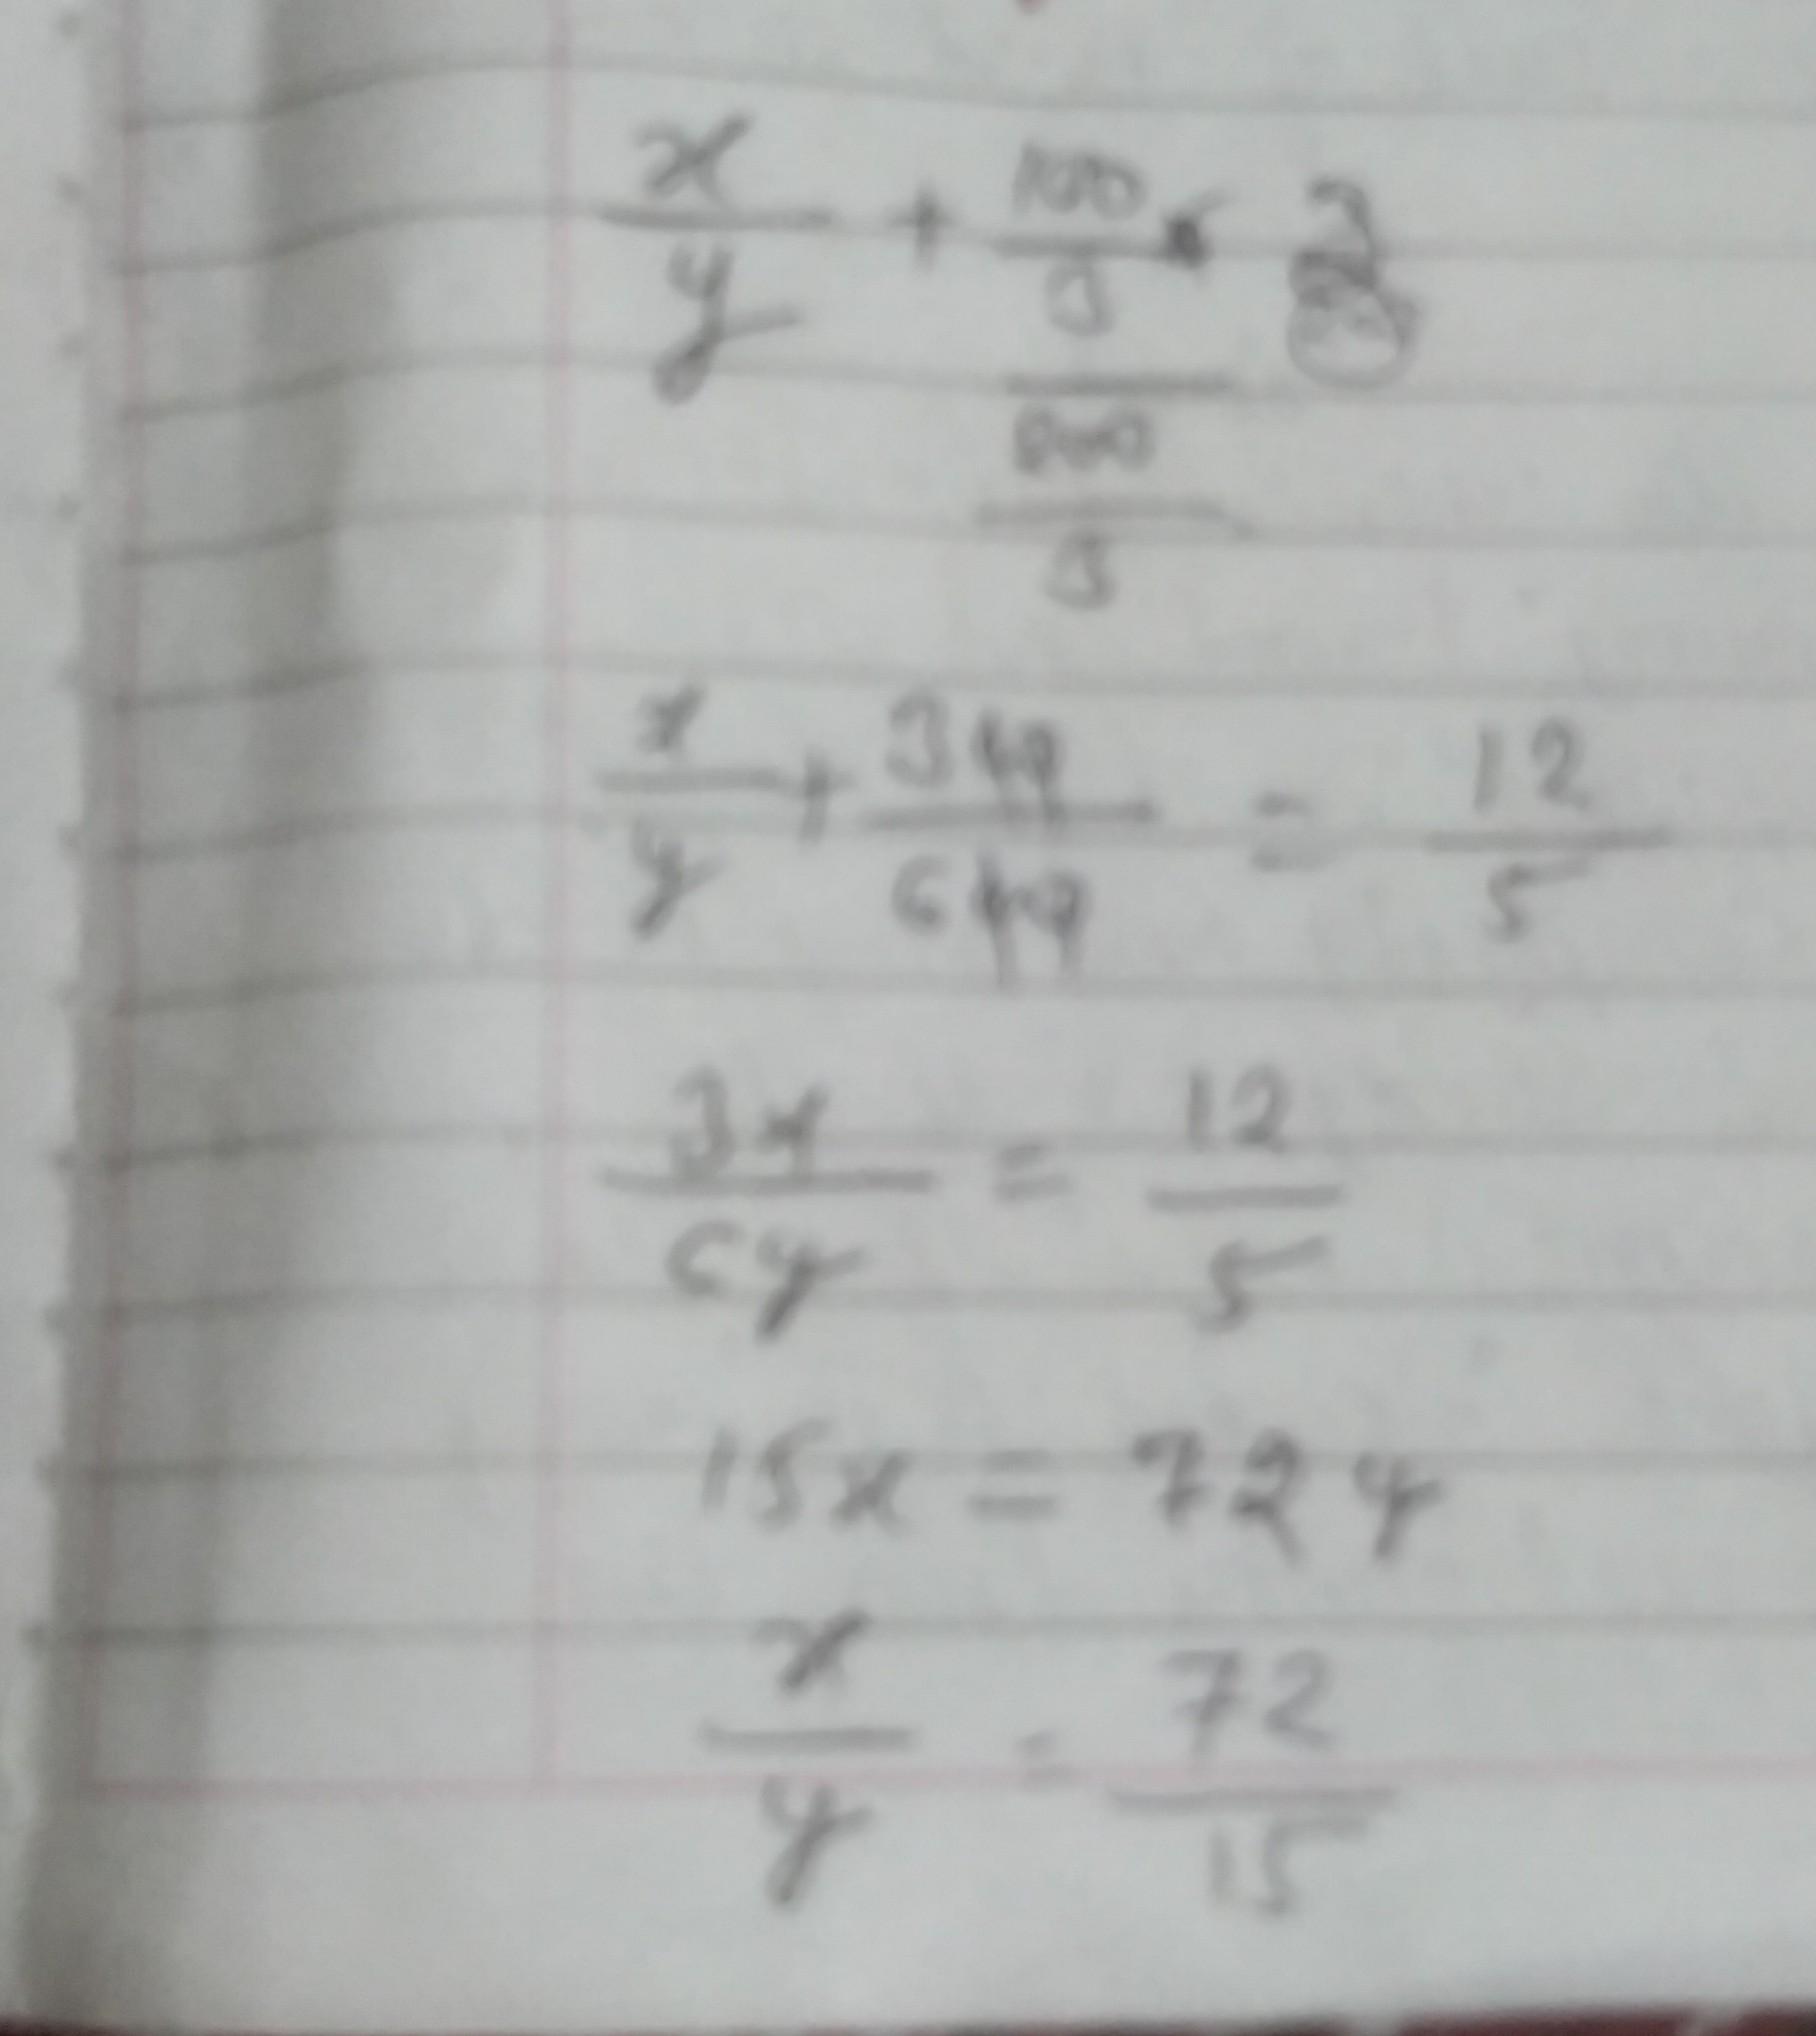 x/y + 100/3
800/3
x/y + 3 / 6 = 12/5
3x/6y = 12/5
15x = 72y
x/y = 72/15